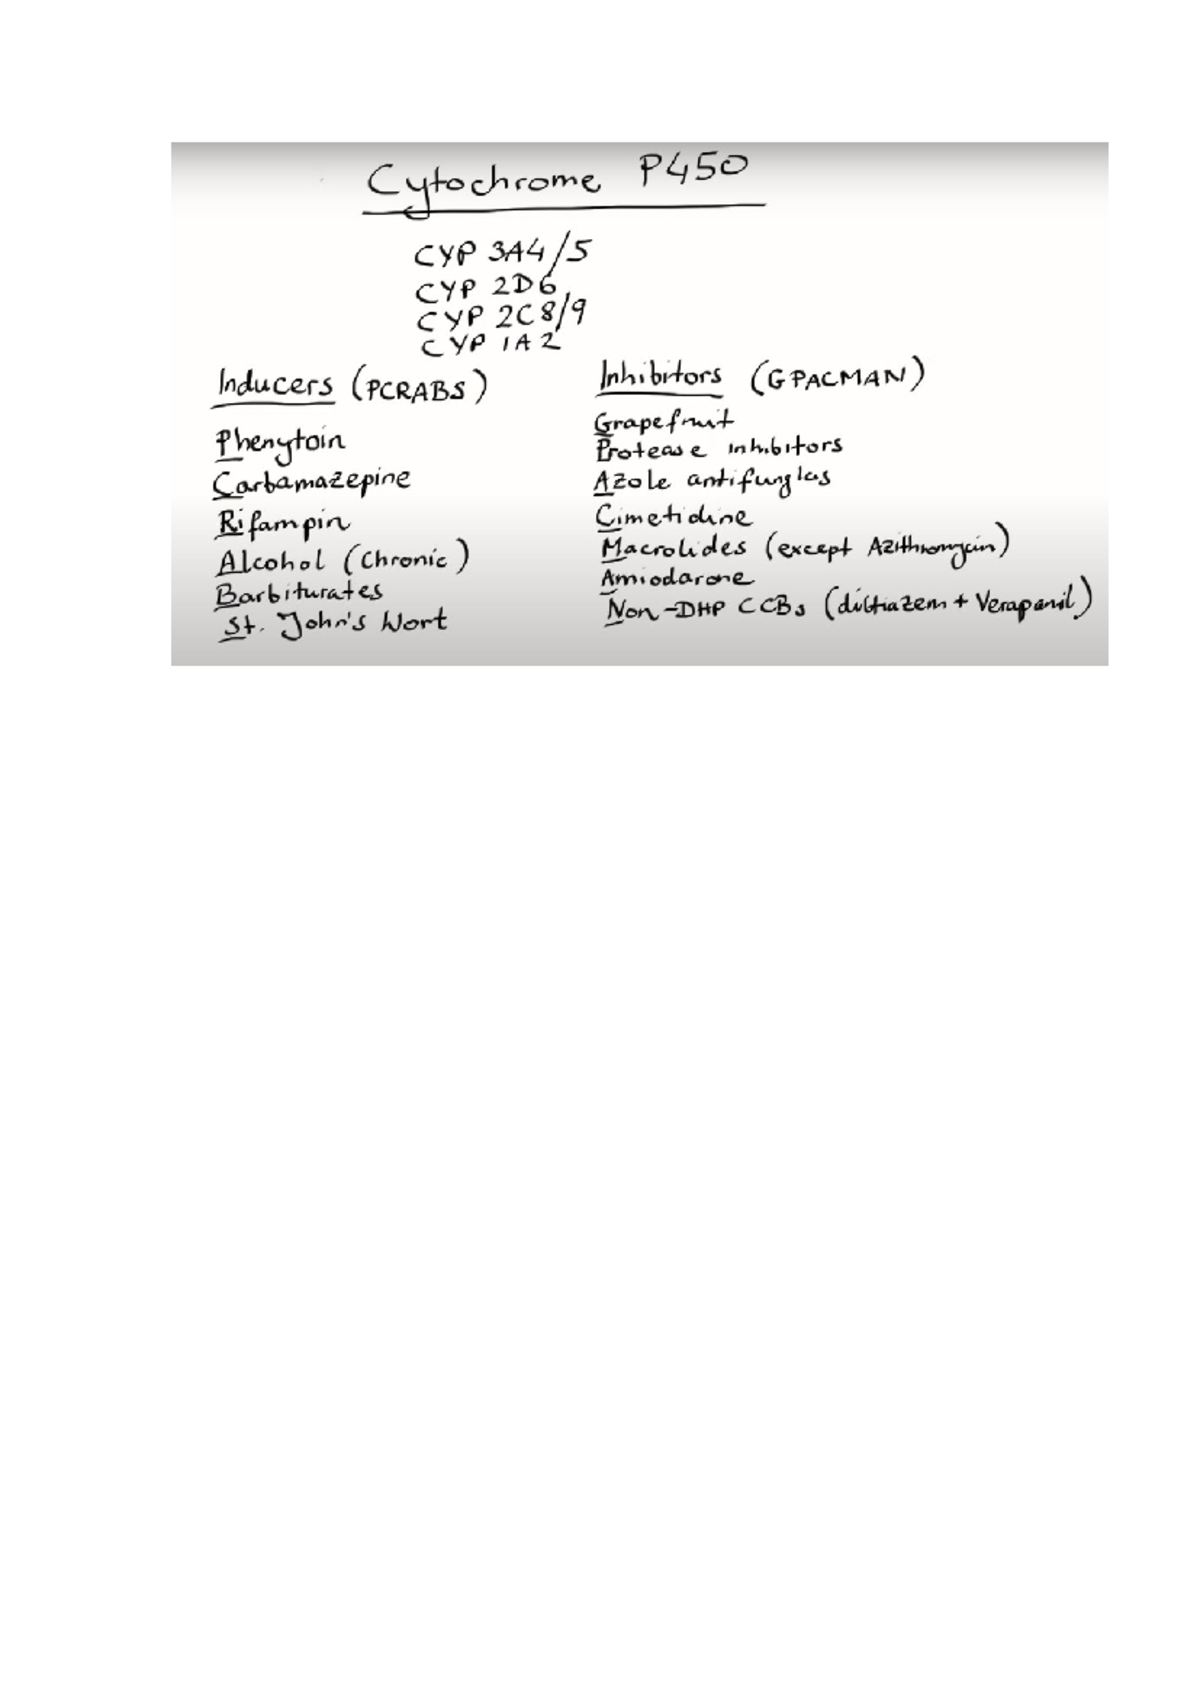 Cytochrome P450
CYP 3A4/5
CYP 2D6
CYP 2C8/9
CYP 1A2
Inducers (PCRABS)
Phenytoin
Carbamazepine
Rifampin
Alcohol (Chronic)
Barbiturates
St. John's Wort
Inhibitors (GPACMAN)
Grapefruit
Protease inhibitors
Azole antifunglas
Cimetidine
Macrolides (except Azithromycin)
Amiodarone
Non-DHP CCBs (diltiazem + Verapamil)